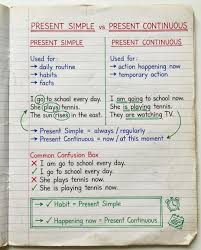 PRESENT SIMPLE vs PRESENT CONTINUOUS
PRESENT SIMPLE
Used for:
→ daily routine
→ habits
→ facts
I go to school every day.
She plays tennis.
The sun rises in the east.
PRESENT CONTINUOUS
Used for:
→ action happening now
→ temporary action
I am going to school now.
She is playing tennis.
They are watching TV.
→ Present Simple = always / regularly
→ Present Continuous = now / at this moment
Common Confusion Box
✗ I am go to school every day.
✓ I go to school every day.
✗ She plays tennis now.
✓ She is playing tennis now.
→ ✓ Habit = Present Simple
→ ✓ Happening now = Present Continuous